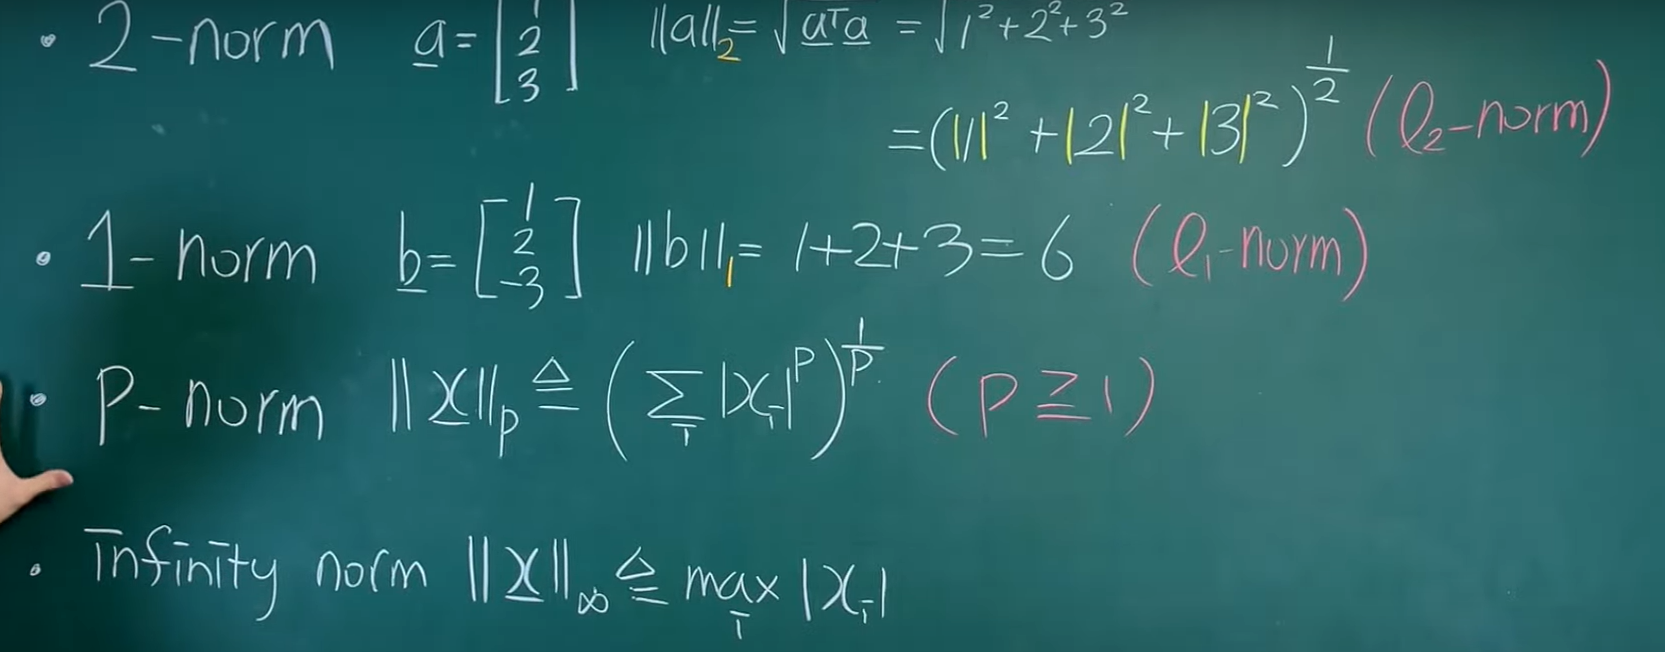 • 2-norm a = [1 2 3] ||a||₂ = √(aᵀa) = √(1² + 2² + 3²)
= (|1|² + |2|² + |3|²)^(1/2) (l₂-norm)
• 1-norm b = [1 2 -3] ||b||₁ = 1+2+3 = 6 (l₁-norm)
• P-norm ||x||_p ≜ (Σ_i |x_i|^p)^(1/p) (p ≥ 1)
• infinity norm ||x||_∞ ≜ max_i |x_i|